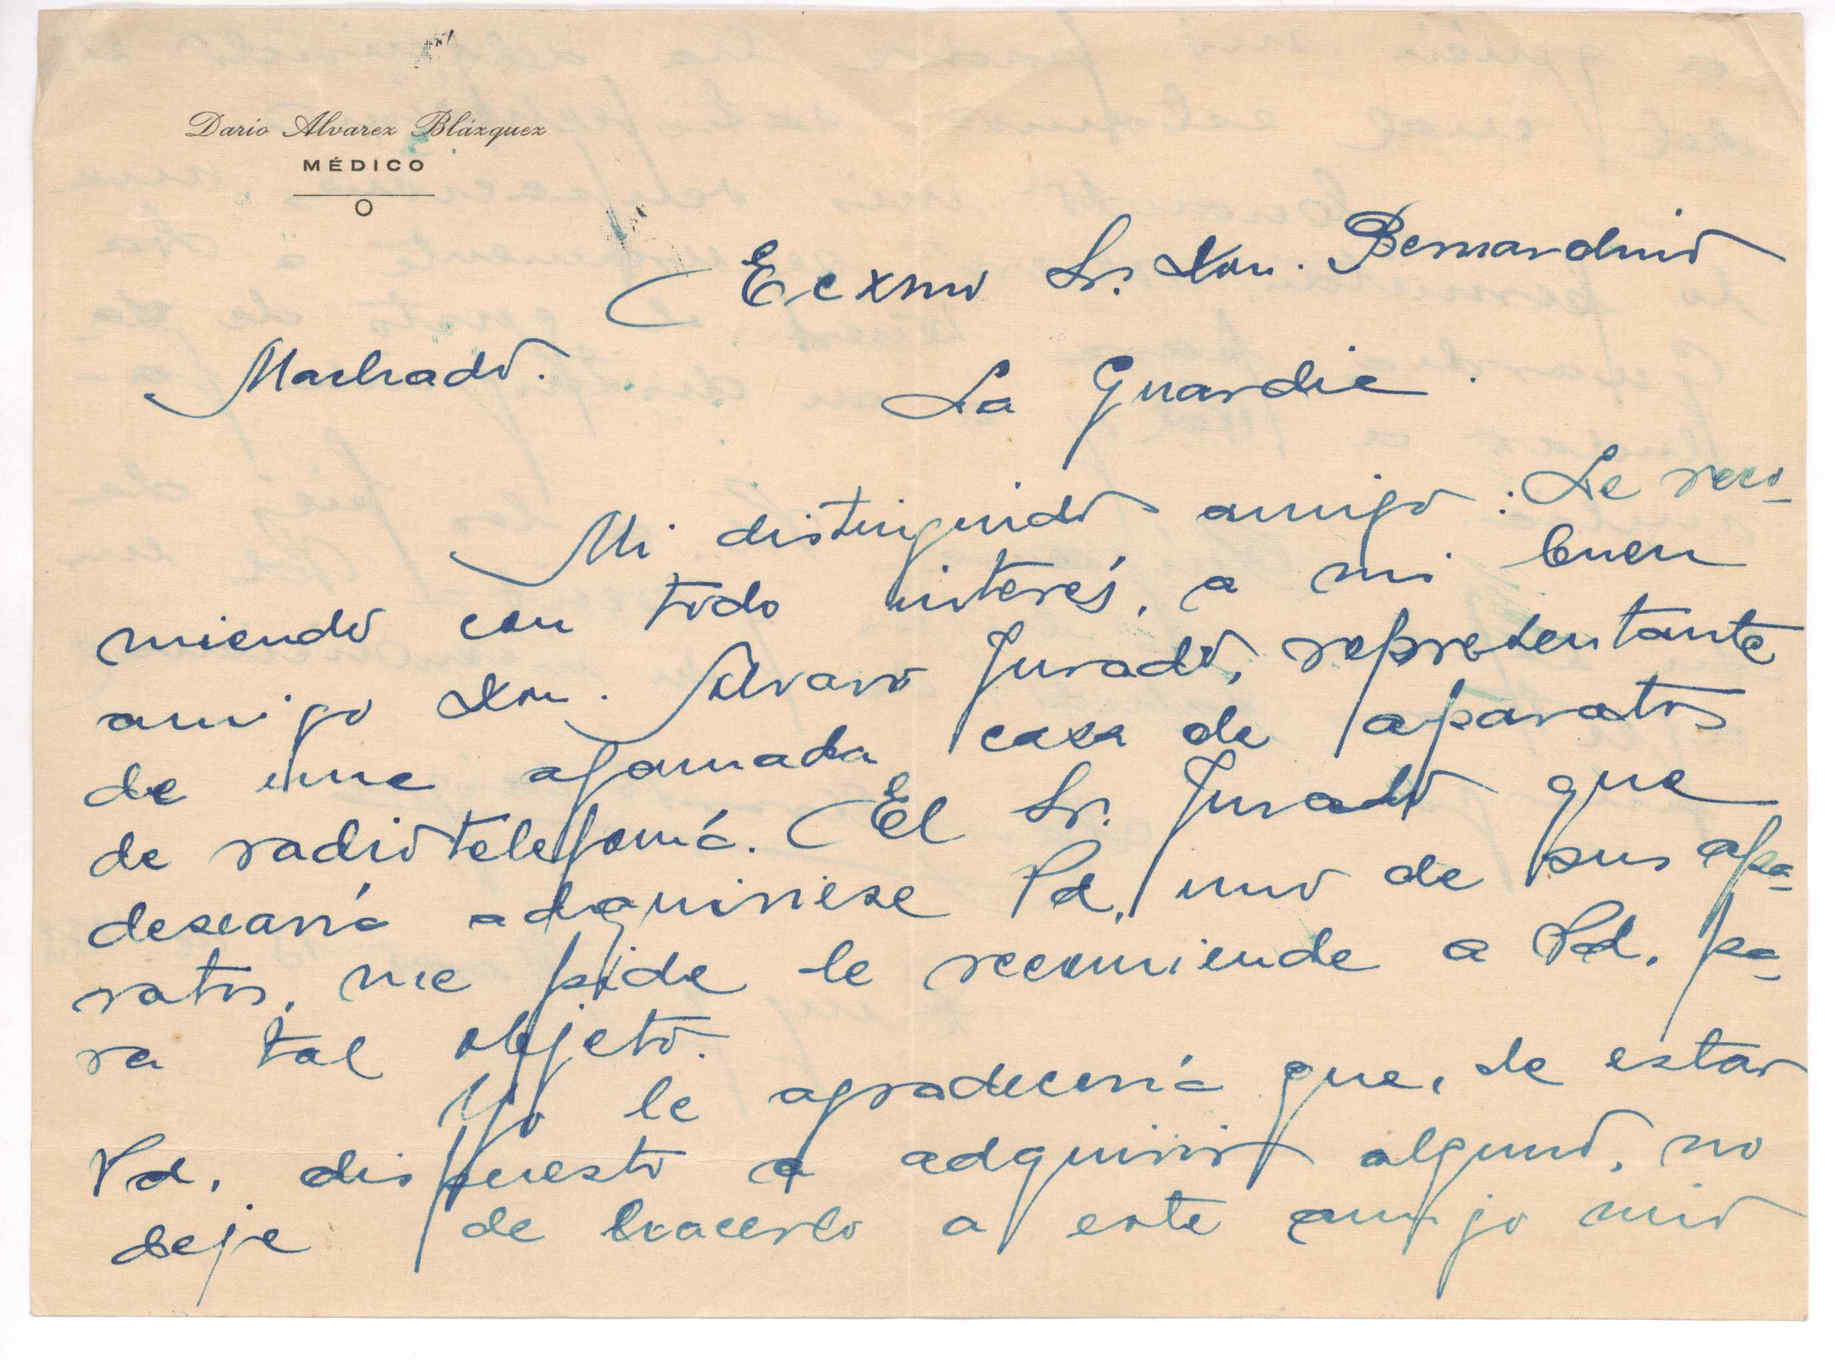 Dario Alvarez Blázquez
MÉDICO
Ecxmo Sr. Don. Bernardino
Machado.
La Guardia.
Mi distinguido amigo: Le reco-
miendo con todo interés, a mi buen
amigo Don. Alvaro Jurado, representante
de una afamada casa de aparatos
de radiotelefonía. El Sr. Jurado que
desearía adquiriese Vd. uno de sus apa-
ratos, me pide le recomiende a Vd. pa-
ra tal objeto.
Yo le agradecería que, de estar
Vd. dispuesto a adquirir alguno, no
deje de hacerlo a este amigo mio